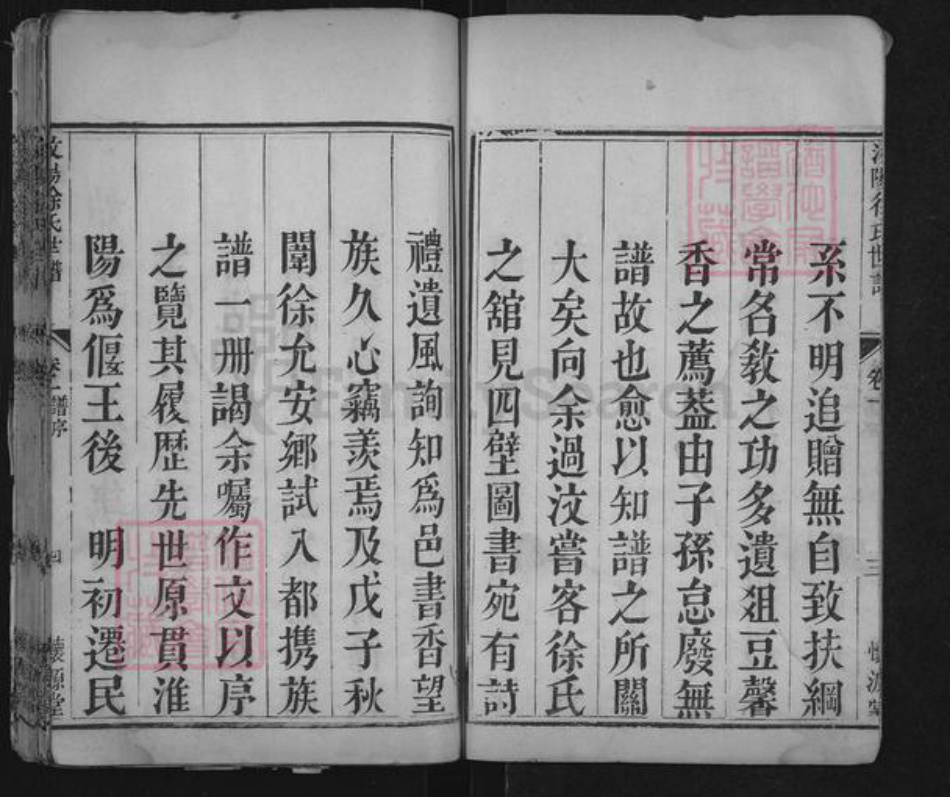 系不明追贈無自致扶綱
常名敎之功多遺爼豆馨
香之薦葢由子孫怠廢無
譜故也愈以知譜之所關
大矣向余過汶嘗客徐氏
之舘見四壁圖書宛有詩
卷一
三
禮遺風詢知爲邑書香望
族久心竊羨焉及戊子秋
闈徐允安鄉試入都携族
譜一册謁余囑作文以序
之覽其履歷先世原貫淮
陽爲偃王後 明初遷民
汶陽徐氏世譜
卷一譜序
四
懷源堂